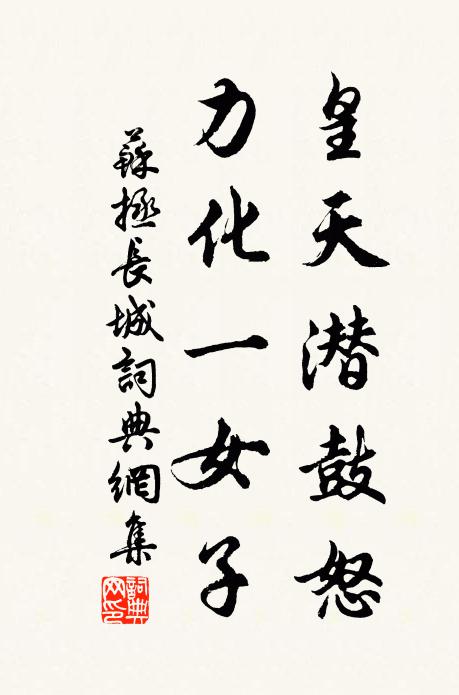 皇天潜鼓怒
力化一女子
蘇拯長城詞典網集
詞典網印